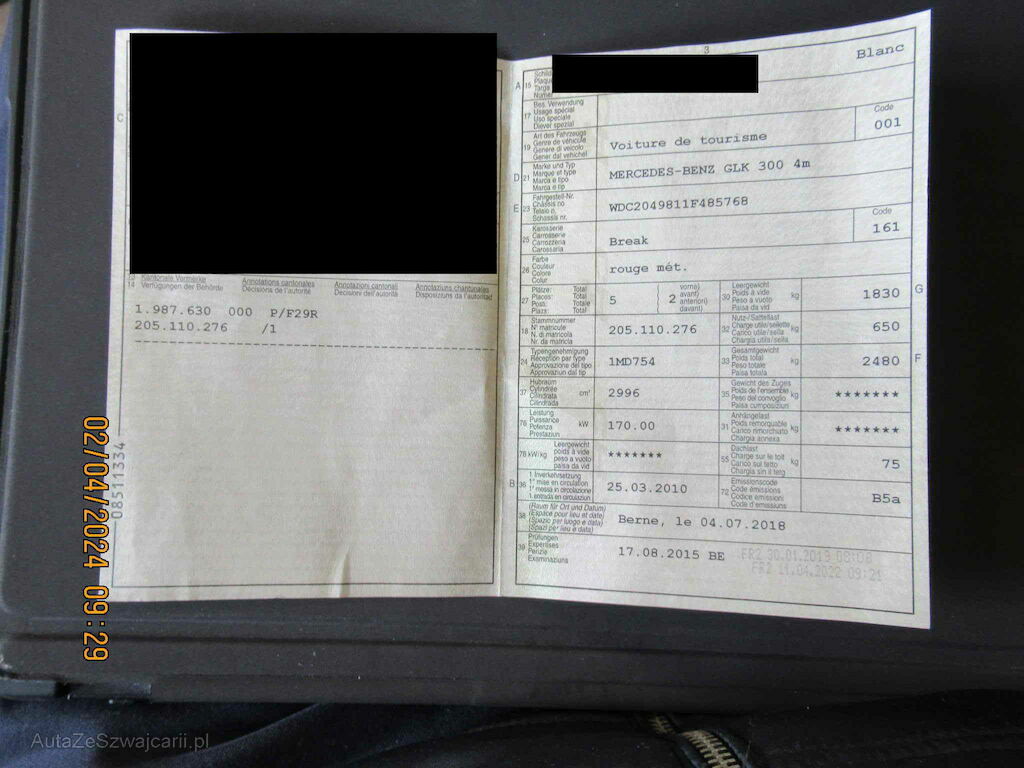 C
13 Kantonale Vermerke
14 Verfügungen der Behörde
Annotations cantonales
Décisions de l'autorité
Annotazioni cantonali
Decisioni dell'autorità
Annotaziuns chantunalas
Disposiziuns da l'autoritad
1.987.630 000 P/F29R
205.110.276 /1
08511334
02/04/2024 09:29
3
Blanc
A 15 Schild
Plaque
Targa
Numer
17 Bes. Verwendung
Usage spécial
Uso speciale
Diever spezial
Code
001
19 Art des Fahrzeugs
Genre de véhicule
Genere di veicolo
Gener dal vehichel
Voiture de tourisme
D 21 Marke und Typ
Marque et type
Marca e tipo
Marca e tip
MERCEDES-BENZ GLK 300 4m
E 23 Fahrgestell-Nr.
Châssis no
Telaio n.
Schassis nr.
WDC2049811F485768
Code
161
25 Karosserie
Carrosserie
Carrozzeria
Carossaria
Break
26 Farbe
Couleur
Colore
Colur
rouge mét.
27 Plätze: Total
Places: Total
Posti: Totale
Plazs: Total
5
2
vorne)
avant)
anteriori)
davant)
30 Leergewicht
Poids à vide
Peso a vuoto
Paisa da vid
kg
1830
G
18 Stammnummer
N° matricule
N. di matricola
Nr. da matricla
205.110.276
32 Nutz-/Sattellast
Charge utile/sellette
Carico utile/sella
Chargia utila/sella
kg
650
24 Typengenehmigung
Réception par type
Approvazione del tipo
Approvaziun dal tip
1MD754
33 Gesamtgewicht
Poids total
Peso totale
Paisa totala
kg
2480
F
37 Hubraum
Cylindrée
Cilindrata
Cilindrada
cm³
2996
35 Gewicht des Zuges
Poids de l'ensemble
Peso del convoglio
Paisa cumposiziun
kg
*******
76 Leistung
Puissance
Potenza
Prestaziun
kW
170.00
31 Anhängelast
Poids remorquable
Carico rimorchiato
Chargia annexa
kg
*******
78 kW/kg
Leergewicht
poids à vide
peso a vuoto
paisa da vid
*******
55 Dachlast
Charge sur le toit
Carico sul tetto
Chargia sin il tetg
kg
75
B 36 1. Inverkehrsetzung
1re mise en circulation
1a messa in circolazione
1. entrada en circulaziun
25.03.2010
72 Emissionscode
Code émissions
Codice emissioni
Code d'emissiuns
B5a
38 (Raum für Ort und Datum)
(Espace pour lieu et date)
(Spazio per luogo e data)
(Spazi per lieu e data)
Berne, le 04.07.2018
39 Prüfungen
Expertises
Perizie
Examinaziuns
17.08.2015 BE
FR2 30.01.2019 08:08
FR2 11.04.2022 09:21
AutaZeSzwajcarii.pl